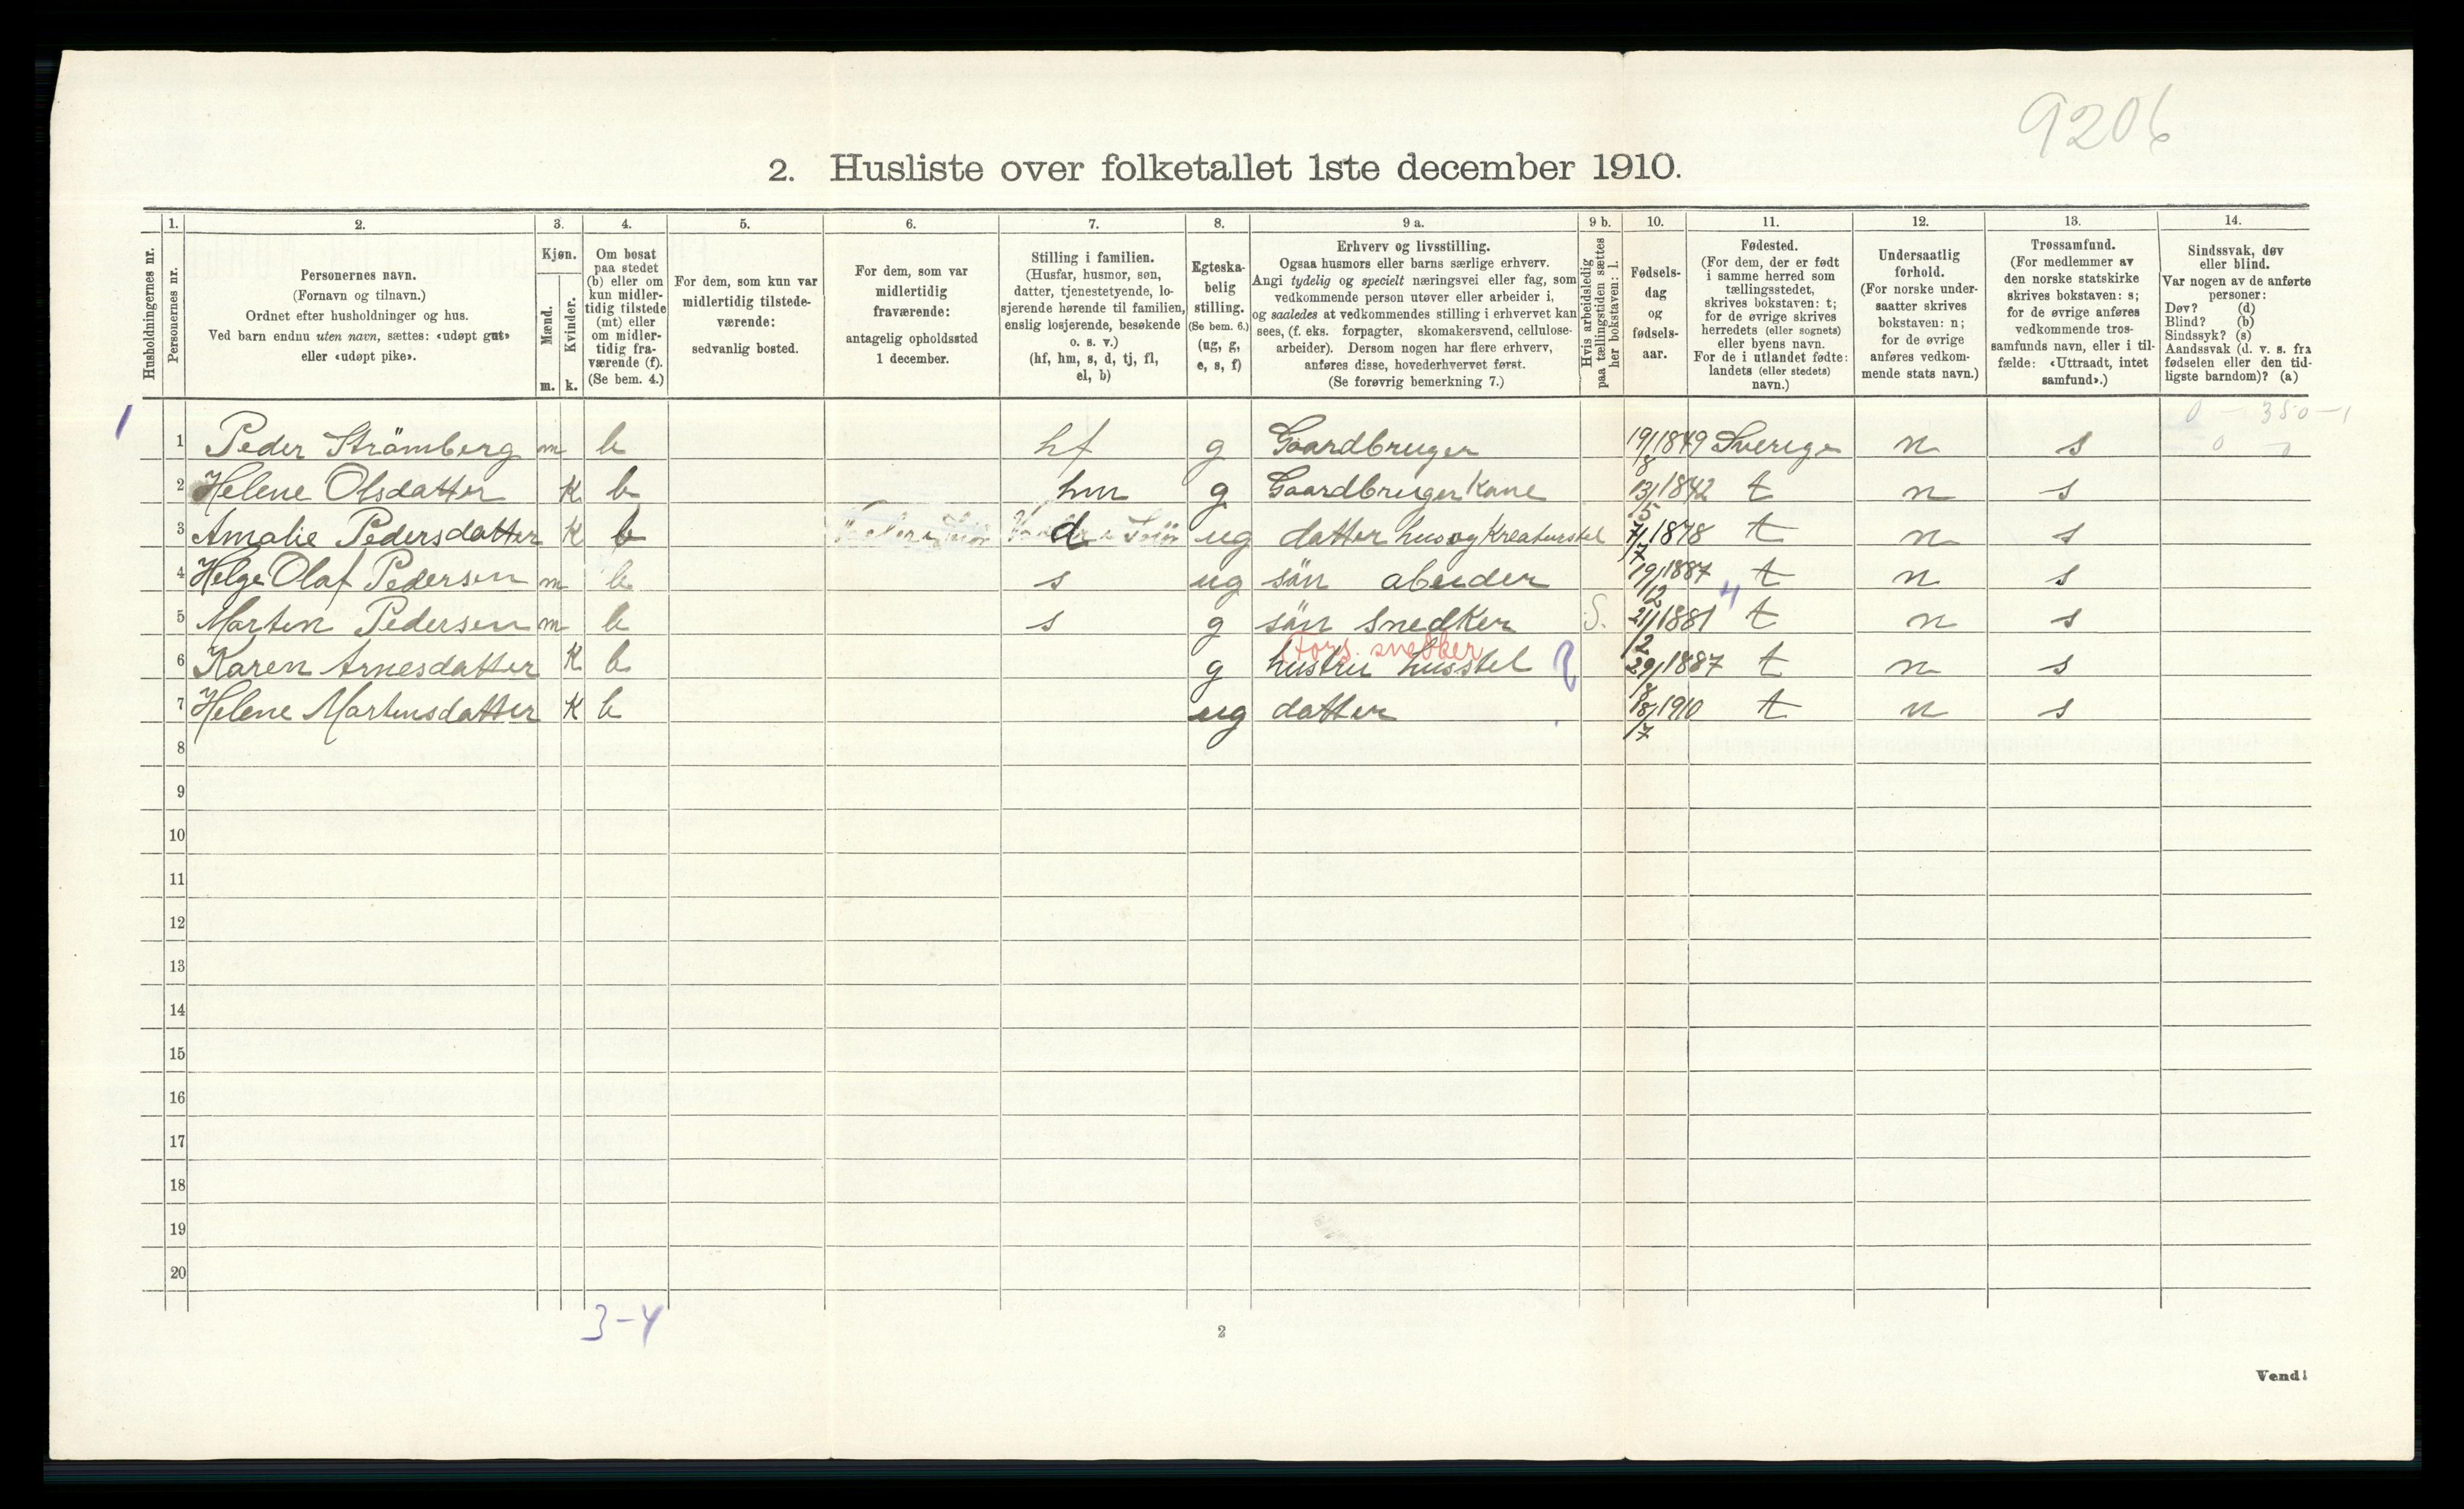 9206
2. Husliste over folketallet 1ste december 1910.
Husholdningernes nr.
1. Personernes nr.
2. Personernes navn. (Fornavn og tilnavn.) Ordnet efter husholdninger og hus. Ved barn endnu uten navn, sættes: «udøpt gut» eller «udøpt pike».
3. Kjøn. Mænd. m. Kvinder. k.
4. Om bosat paa stedet (b) eller om kun midlertidig tilstede (mt) eller om midlertidig fraværende (f). (Se bem. 4.)
5. For dem, som kun var midlertidig tilstedeværende: sedvanlig bosted.
6. For dem, som var midlertidig fraværende: antagelig opholdssted 1 december.
7. Stilling i familien. (Husfar, husmor, søn, datter, tjenestetyende, losjerende hørende til familien, enslig losjerende, besøkende o. s. v.) (hf, hm, s, d, tj, fl, el, b)
8. Egteskabelig stilling. (Se bem. 6.) (ug, g, e, s, f)
9 a. Erhverv og livsstilling. Ogsaa husmors eller barns særlige erhverv. Angi tydelig og specielt næringsvei eller fag, som vedkommende person utøver eller arbeider i, og saaledes at vedkommendes stilling i erhvervet kan sees, (f. eks. forpagter, skomakersvend, cellulosearbeider). Dersom nogen har flere erhverv, anføres disse, hovederhvervet først. (Se forøvrig bemerkning 7.)
9 b. Hvis arbeidsledig paa tællingstiden sættes her bokstaven: l.
10. Fødselsdag og fødselsaar.
11. Fødested. (For dem, der er født i samme herred som tællingsstedet, skrives bokstaven: t; for de øvrige skrives herredets (eller sognets) eller byens navn. For de i utlandet fødte: landets (eller stedets) navn.)
12. Undersaatlig forhold. (For norske undersaatter skrives bokstaven: n; for de øvrige anføres vedkommende stats navn.)
13. Trossamfund. (For medlemmer av den norske statskirke skrives bokstaven: s; for de øvrige anføres vedkommende trossamfunds navn, eller i tilfælde: «Uttraadt, intet samfund».)
14. Sindssvak, døv eller blind. Var nogen av de anførte personer: Døv? (d) Blind? (b) Sindssyk? (s) Aandssvak (d. v. s. fra fødselen eller den tidligste barndom)? (a)
0 - 350 - 1
0 0
1 1 Peder Strömberg m b hf g Gaardbruger 19/8 1849 Sverige n s
2 Helene Olsdatter K b hm g Gaardbruger Kone 13/5 1842 t n s
3 Amalie Pedersdatter K b d ug datter hus og Kreaturstel 7/7 1878 t n s
4 Helge Olaf Pedersen m b s ug sön abeider 19/12 1887 t n s
4
5 Marten Pedersen m b s g sön snedker S. 21/2 1881 t n s
(Fors. snedker
6 Karen Arnesdatter K b g hustru husstel 29/8 1887 t n s
7 Helene Martinsdatter K b ug datter 18/7 1910 t n s
8
9
10
11
12
13
14
15
16
17
18
19
20
3-4
2
Vend!